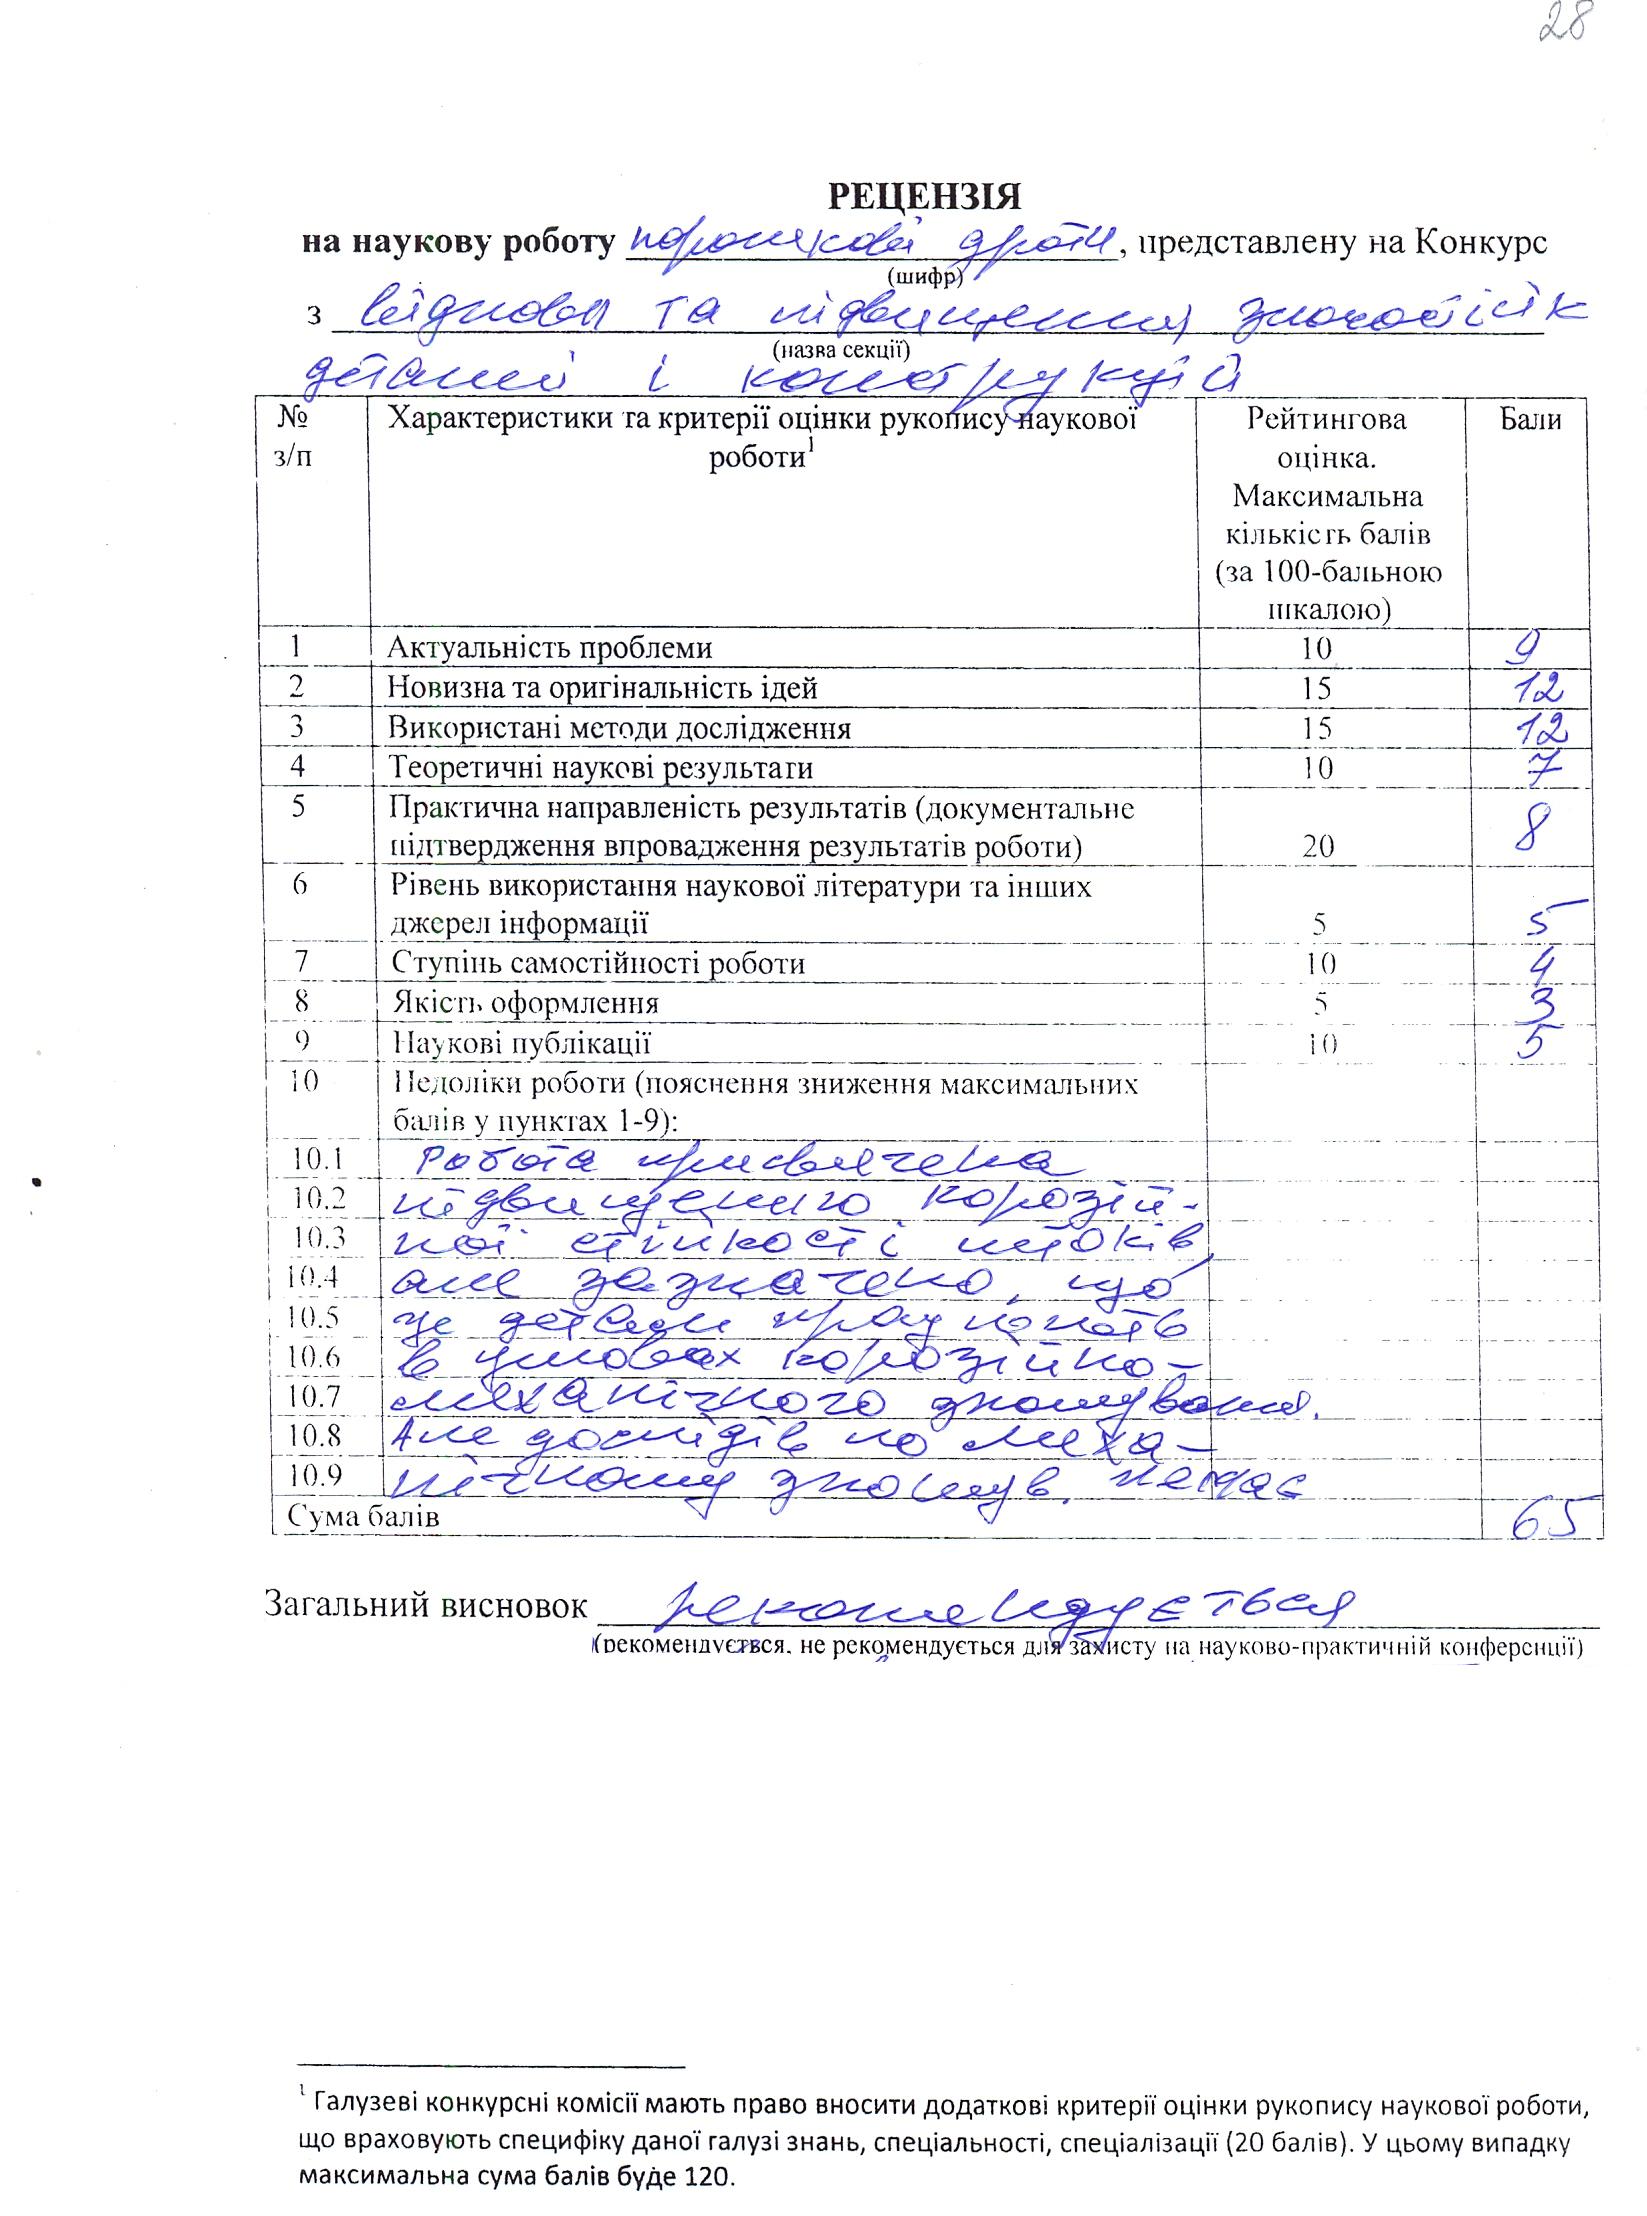 28
РЕЦЕНЗІЯ
на наукову роботу порошкові дроти, представлену на Конкурс
(шифр)
з віднова та підвищення зносостійк
(назва секції)
деталей і конструкцій
№ з/п Характеристики та критерії оцінки рукопису наукової роботи¹ Рейтингова оцінка. Максимальна кількість балів (за 100-бальною шкалою) Бали
1 Актуальність проблеми 10 9
2 Новизна та оригінальність ідей 15 12
3 Використані методи дослідження 15 12
4 Теоретичні наукові результати 10 7
5 Практична направленість результатів (документальне
підтвердження впровадження результатів роботи) 20 8
6 Рівень використання наукової літератури та інших
джерел інформації 5 5
7 Ступінь самостійності роботи 10 4
8 Якість оформлення 5 3
9 Наукові публікації 10 5
10 Недоліки роботи (пояснення зниження максимальних
балів у пунктах 1-9):
10.1 Робота присвячена
10.2 підвищенню корозій-
10.3 ної стійкості штоків,
10.4 але зазначено, що
10.5 це деталі працюють
10.6 в умовах корозійно-
10.7 механічного зношування.
10.8 Але дослідів по меха-
10.9 нічному зношув. немає
Сума балів 65
Загальний висновок рекомендується
(рекомендується, не рекомендується для захисту на науково-практичній конференції)
¹ Галузеві конкурсні комісії мають право вносити додаткові критерії оцінки рукопису наукової роботи,
що враховують специфіку даної галузі знань, спеціальності, спеціалізації (20 балів). У цьому випадку
максимальна сума балів буде 120.